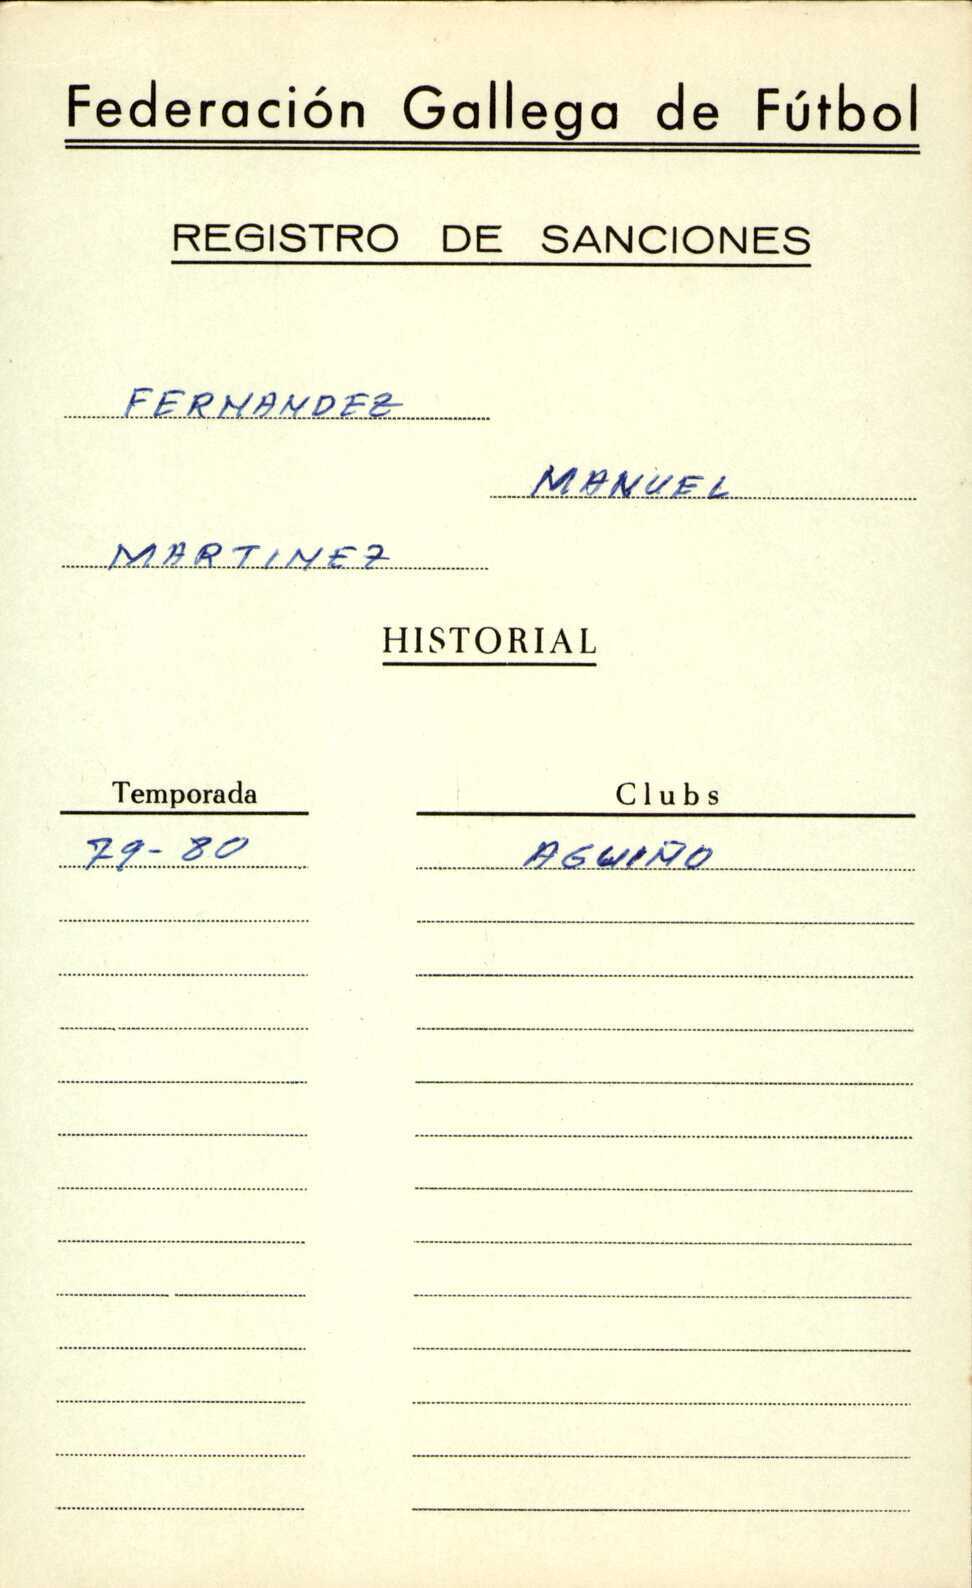 Federación Gallega de Fútbol
REGISTRO DE SANCIONES
FERNANDEZ
MANUEL
MARTINEZ
HISTORIAL
Temporada Clubs
79-80 AGUIÑO